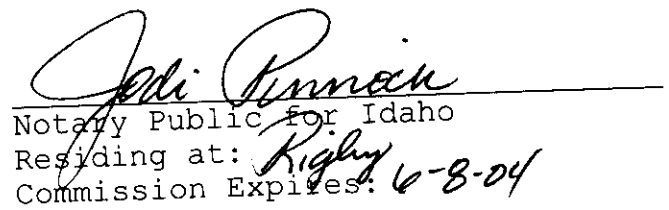 Jodi Pinnock
Notary Public for Idaho
Residing at: Rigby
Commission Expires: 6-8-04